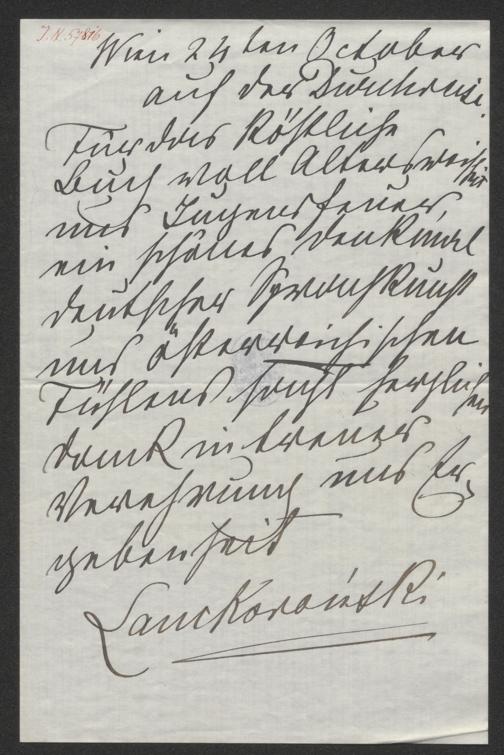 J.N. 57816
Wien 24ten October
auf der Durchreise.
Für das köstliche
Buch voll Altersweisheit
und Jugendfeuer,
ein schönes Denkmal
deutscher Sprachkunst
und österreichischen
Fühlens sagt herzlichen
Dank in treuer
Verehrung und Er-
gebenheit
Lanckoroński